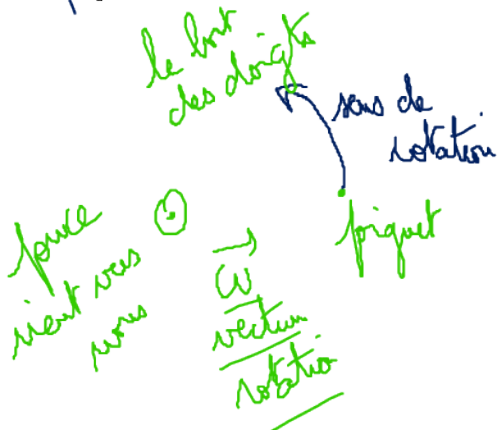 le bout
des doigts
sens de
rotation
poignet
pouce
vient vers
nous
ω
vecteur
rotation